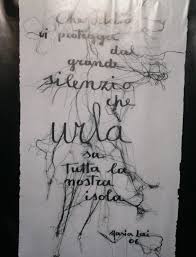 Che Iddio
vi protegga
dal
grande
silenzio
che
urla
su
tutta la
nostra
isola
Maria Lai
06